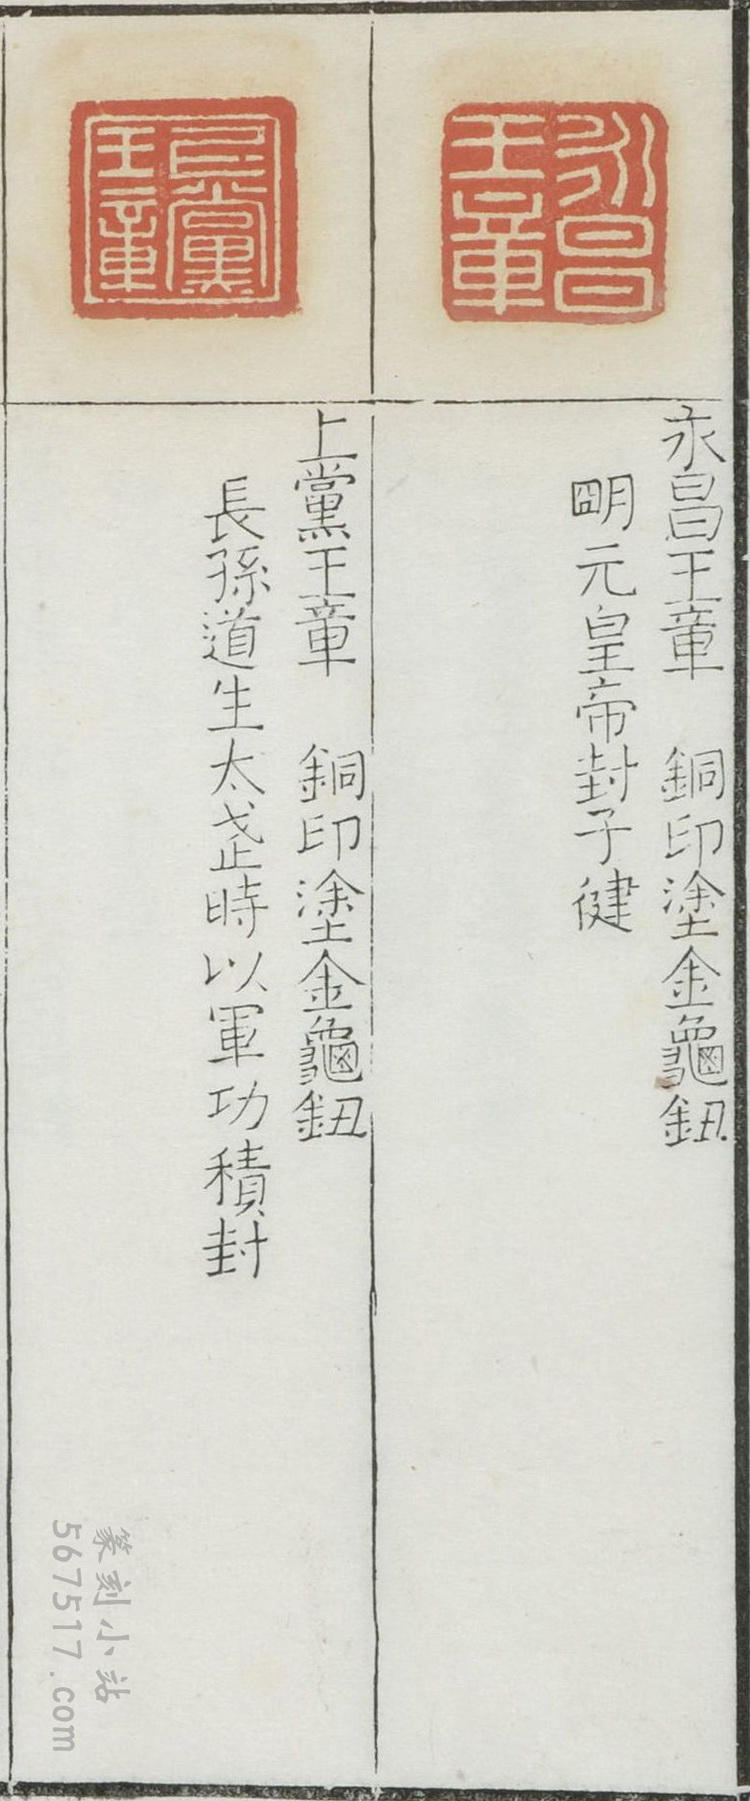 永昌王章
永昌王章　銅印塗金龜鈕
朙元皇帝封子健
上黨王章
上黨王章　銅印塗金龜鈕
長孫道生太武時以軍功積封
篆刻小站
567517.com